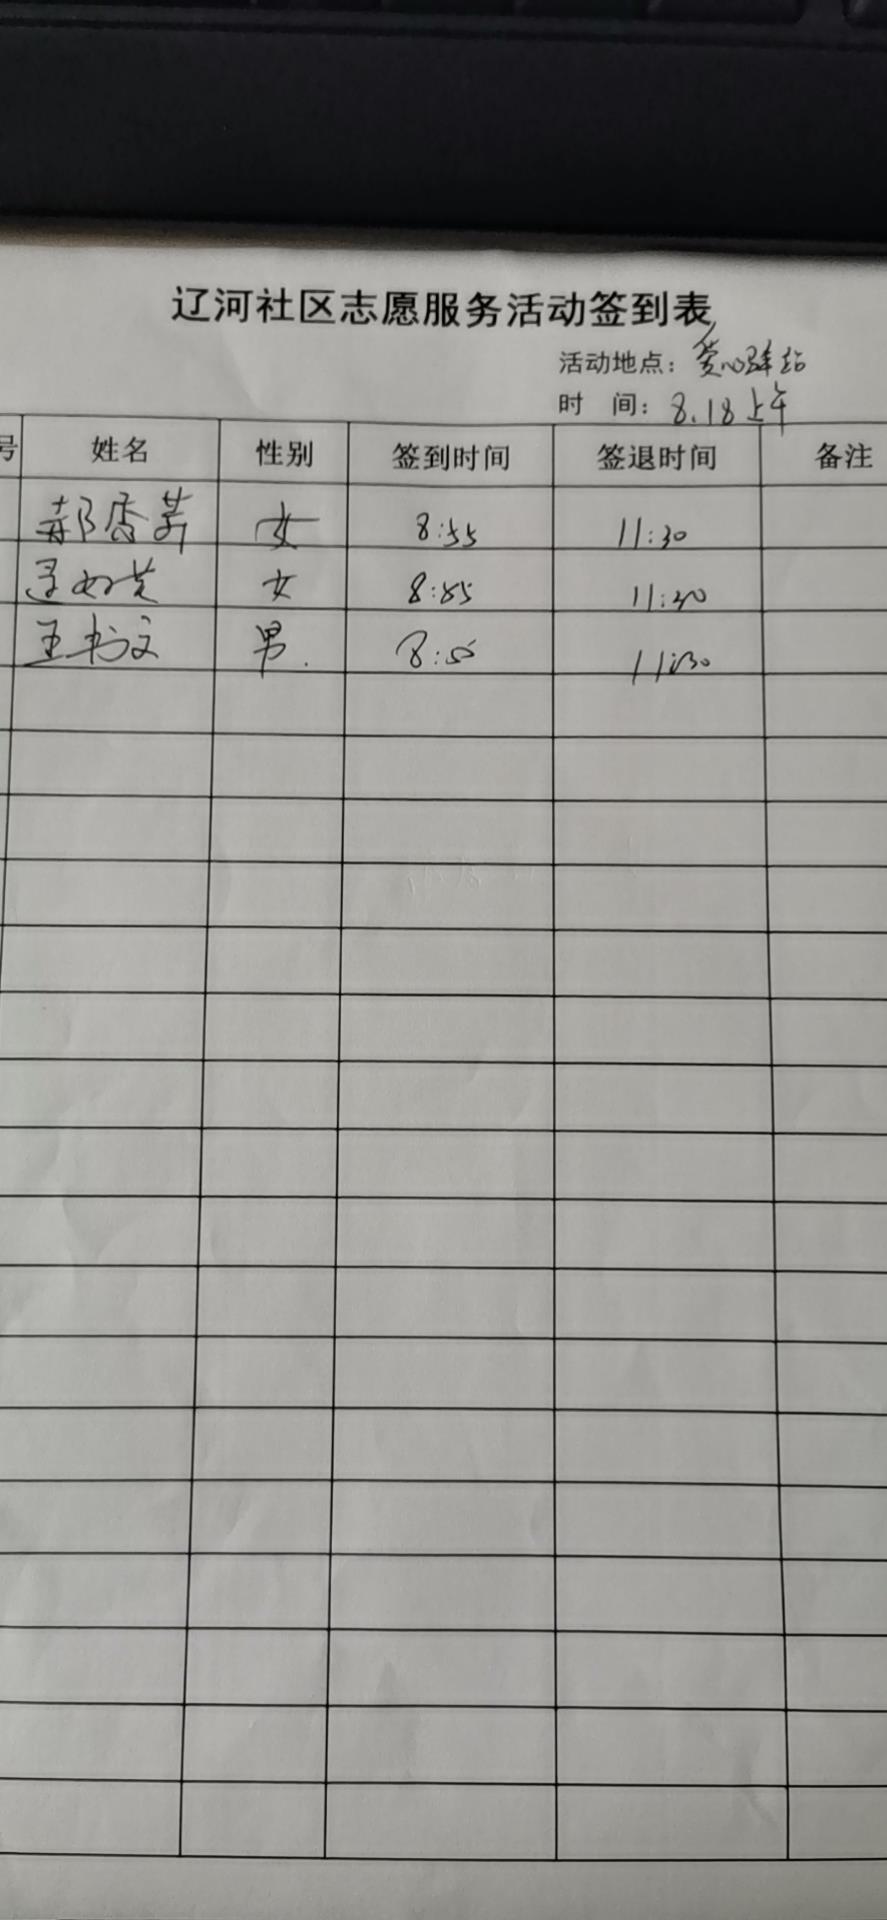 辽河社区志愿服务活动签到表
活动地点：爱心驿站
时 间：8.18上午
号 姓名 性别 签到时间 签退时间 备注
郝香芳 女 8:55 11:30
女 8:55 11:30
王书文 男. 8:55 11:30